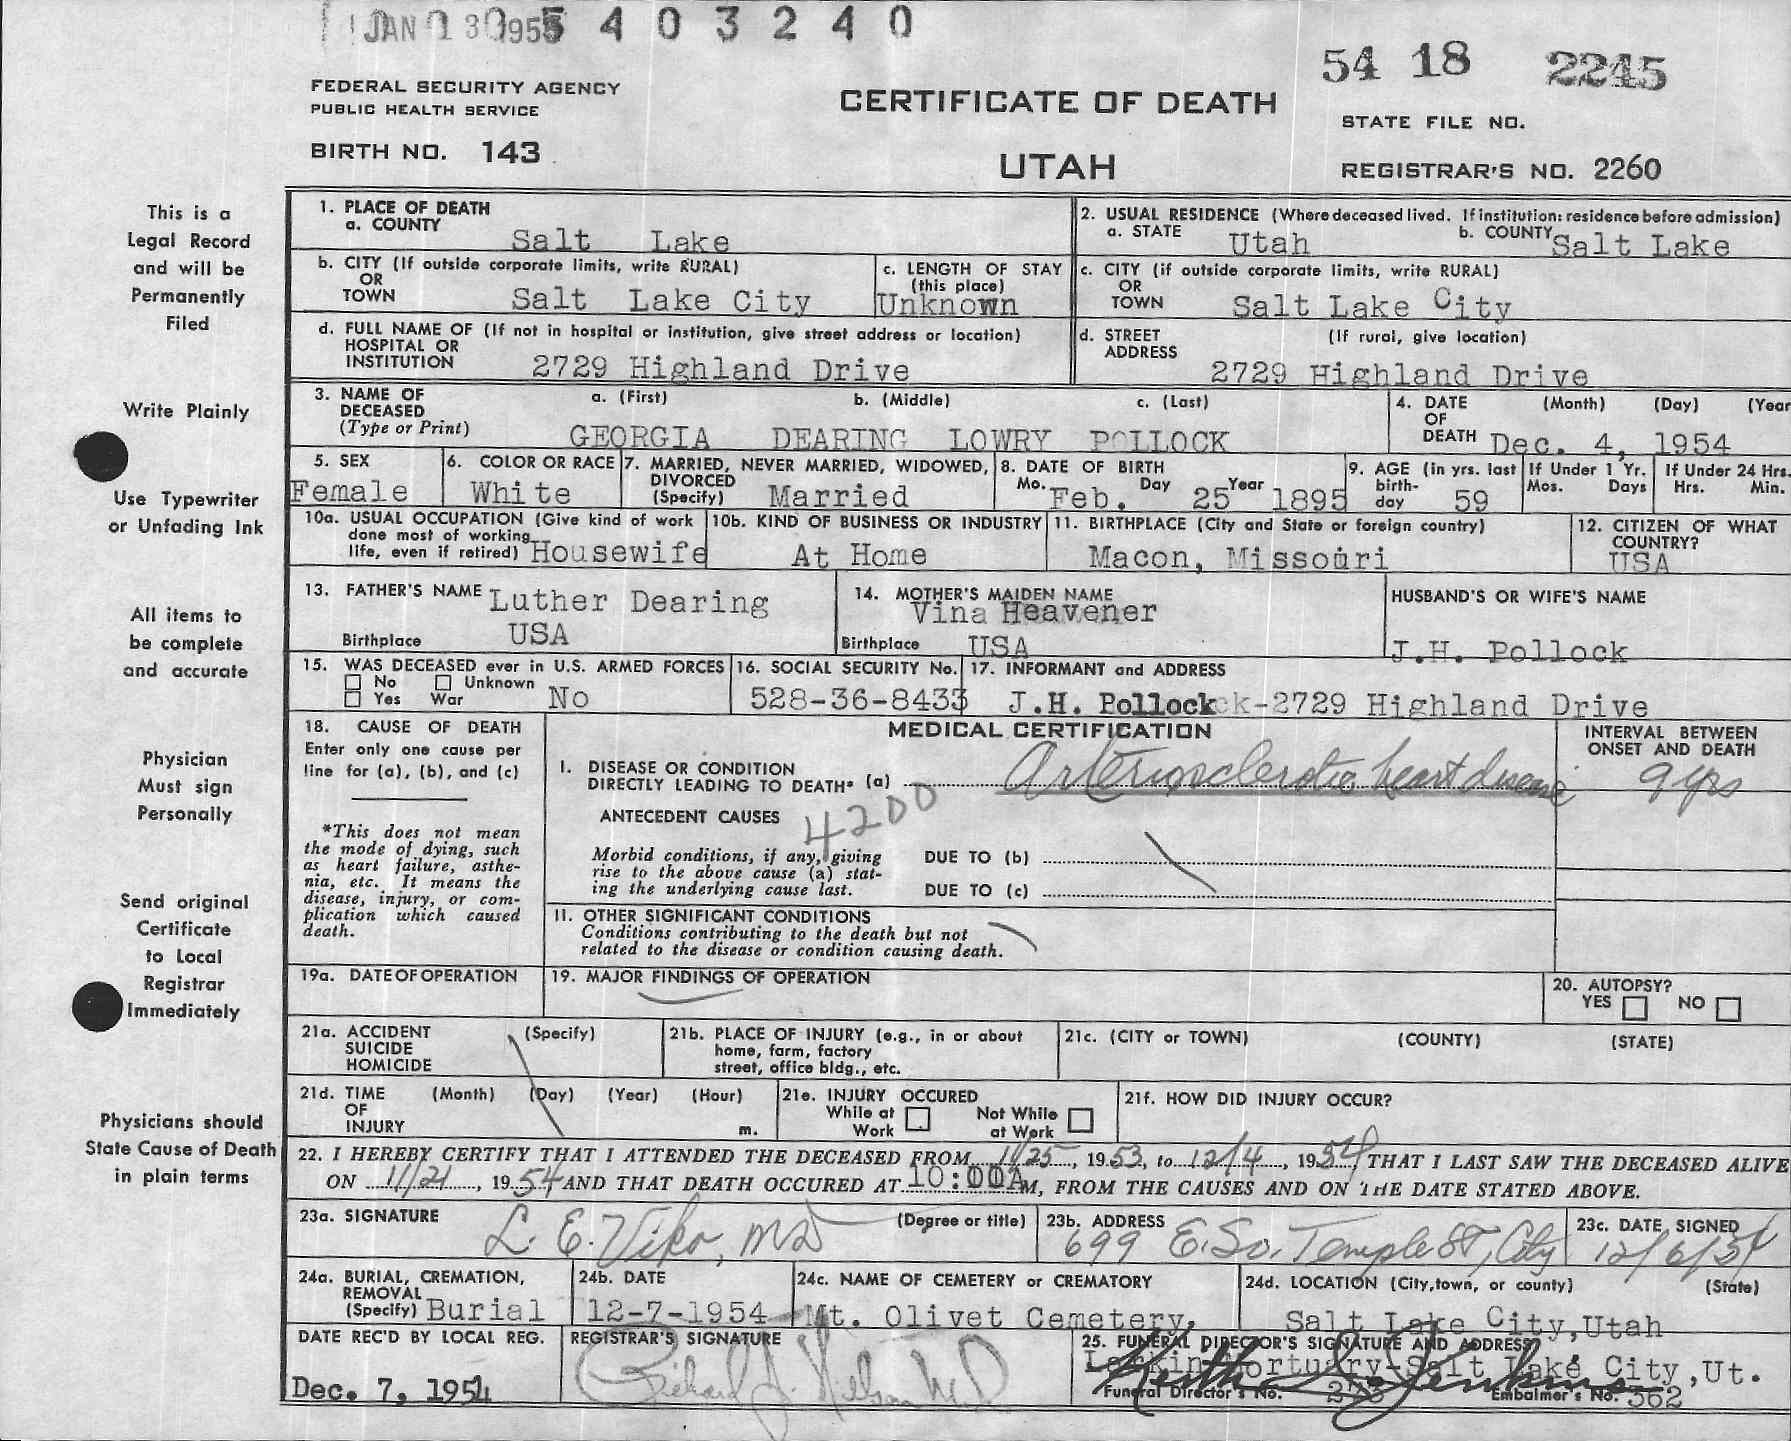 JAN 13 1955 5 4 0 3 2 4 0
54 18 2245
FEDERAL SECURITY AGENCY
PUBLIC HEALTH SERVICE
CERTIFICATE OF DEATH
STATE FILE NO.
BIRTH NO. 143
UTAH
REGISTRAR'S NO. 2260
This is a
Legal Record
and will be
Permanently
Filed
Write Plainly
Use Typewriter
or Unfading Ink
All items to
be complete
and accurate
Physician
Must sign
Personally
Send original
Certificate
to Local
Registrar
Immediately
Physicians should
State Cause of Death
in plain terms
1. PLACE OF DEATH
a. COUNTY Salt Lake
2. USUAL RESIDENCE (Where deceased lived. If institution: residence before admission)
a. STATE Utah b. COUNTY Salt Lake
b. CITY (If outside corporate limits, write RURAL)
OR
TOWN Salt Lake City
c. LENGTH OF STAY
(this place)
Unknown
c. CITY (if outside corporate limits, write RURAL)
OR
TOWN Salt Lake City
d. FULL NAME OF (If not in hospital or institution, give street address or location)
HOSPITAL OR
INSTITUTION 2729 Highland Drive
d. STREET (If rural, give location)
ADDRESS 2729 Highland Drive
3. NAME OF a. (First) b. (Middle) c. (Last)
DECEASED
(Type or Print) GEORGIA DEARING LOWRY POLLOCK
4. DATE (Month) (Day) (Year
OF
DEATH Dec. 4, 1954
5. SEX
Female
6. COLOR OR RACE
White
7. MARRIED, NEVER MARRIED, WIDOWED,
DIVORCED
(Specify) Married
8. DATE OF BIRTH
Mo. Feb. Day 25 Year 1895
9. AGE (in yrs. last
birth-
day 59
If Under 1 Yr.
Mos. Days
If Under 24 Hrs.
Hrs. Min.
10a. USUAL OCCUPATION (Give kind of work
done most of working
life, even if retired) Housewife
10b. KIND OF BUSINESS OR INDUSTRY
At Home
11. BIRTHPLACE (City and State or foreign country)
Macon, Missouri
12. CITIZEN OF WHAT
COUNTRY?
USA
13. FATHER'S NAME Luther Dearing
Birthplace USA
14. MOTHER'S MAIDEN NAME
Vina Heavener
Birthplace USA
HUSBAND'S OR WIFE'S NAME
J.H. Pollock
15. WAS DECEASED ever in U.S. ARMED FORCES
No Unknown
Yes War No
16. SOCIAL SECURITY No.
528-36-8433
17. INFORMANT and ADDRESS
J.H. Pollock-2729 Highland Drive
18. CAUSE OF DEATH
Enter only one cause per
line for (a), (b), and (c)
*This does not mean
the mode of dying, such
as heart failure, asthe-
nia, etc. It means the
disease, injury, or com-
plication which caused
death.
MEDICAL CERTIFICATION
INTERVAL BETWEEN
ONSET AND DEATH
I. DISEASE OR CONDITION
DIRECTLY LEADING TO DEATH* (a) Arteriosclerotic heart disease 9 yrs
4200
ANTECEDENT CAUSES
Morbid conditions, if any, giving
rise to the above cause (a) stat-
ing the underlying cause last.
DUE TO (b)
DUE TO (c)
II. OTHER SIGNIFICANT CONDITIONS
Conditions contributing to the death but not
related to the disease or condition causing death.
19a. DATE OF OPERATION
19. MAJOR FINDINGS OF OPERATION
20. AUTOPSY?
YES NO
21a. ACCIDENT (Specify)
SUICIDE
HOMICIDE
21b. PLACE OF INJURY (e.g., in or about
home, farm, factory
street, office bldg., etc.
21c. (CITY or TOWN) (COUNTY) (STATE)
21d. TIME (Month) (Day) (Year) (Hour)
OF
INJURY m.
21e. INJURY OCCURED
While at Work
Not While at Work
21f. HOW DID INJURY OCCUR?
22. I HEREBY CERTIFY THAT I ATTENDED THE DECEASED FROM 11/25, 1953, to 12/4, 1954, THAT I LAST SAW THE DECEASED ALIVE
ON 11/21, 1954 AND THAT DEATH OCCURED AT 10:00A M, FROM THE CAUSES AND ON THE DATE STATED ABOVE.
23a. SIGNATURE (Degree or title)
L. E. Viko, MD
23b. ADDRESS
699 E. So. Temple St, City
23c. DATE SIGNED
12/6/54
24a. BURIAL, CREMATION,
REMOVAL
(Specify) Burial
24b. DATE
12-7-1954
24c. NAME OF CEMETERY or CREMATORY
Mt. Olivet Cemetery,
24d. LOCATION (City, town, or county) (State)
Salt Lake City, Utah
DATE REC'D BY LOCAL REG.
Dec. 7, 1954
REGISTRAR'S SIGNATURE
Richard J. Nelson M.D
25. FUNERAL DIRECTOR'S SIGNATURE AND ADDRESS
Larkin Mortuary-Salt Lake City, Ut.
Keith S. Jenkins
Funeral Director's No. 273 Embalmer's No. 362